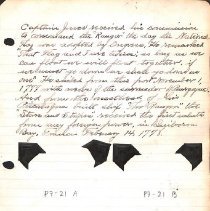 Captain Jones received his commission
to command the Ranger the day the National
Flag was adopted by Congress. He remarked
That Flag and I are twins, as long as we
can float we will float together, if
we must go down we shall go down as
one". He sailed from this port November 1,
1777 with news of the surrender of Burgoyne.
And from the masthead of his
Portsmouth built sloop "The Ranger" the
Stars and Stripes received the first salute
from any foreign power, in Quiberon
Bay, France February 14, 1778.
P7-21 A
P7-21 B